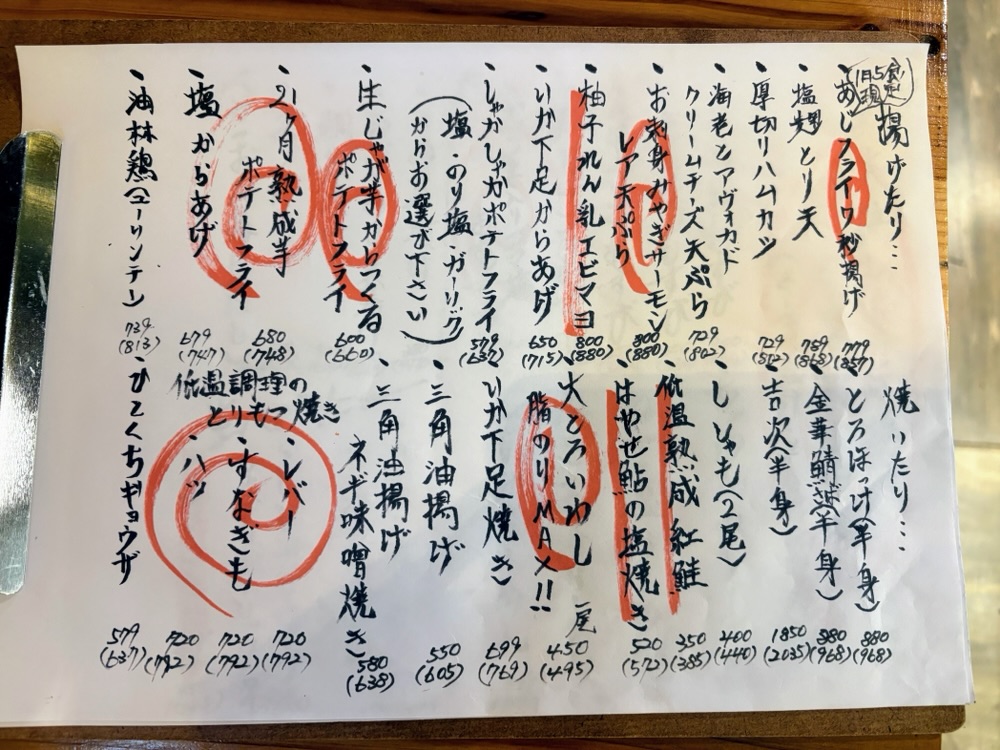 揚げたり…
・あじフライワ秒揚げ
779
(857)
・塩麹とり天
789
(868)
・厚切りハムカツ
729
(802)
・海老とアヴォカド
クリームチーズ天ぷら
729
(802)
・お刺身みやぎサーモン
レア天ぷら
800
(880)
・柚子れん乳エビマヨ
800
(880)
・いか下足からあげ
650
(715)
・しゃかしゃかポテトフライ
579
(637)
(塩・のり塩・ガーリック
からお選び下さい)
・生じゃが芋からつくる
ポテトフライ
600
(660)
・21ヶ月熟成芋
ポテトフライ
680
(748)
・塩からあげ
679
(747)
・油林鶏(ユーリンチー)
739
(813)
焼いたり…
・とろほっけ(半身)
880
(968)
・金華鯖(半身)
880
(968)
・吉次(半身)
1850
(2035)
・ししゃも(2尾)
400
(440)
・低温熟成 紅鮭
350
(385)
・はやせ鮎の塩焼き
520
(572)
・大とろいわし 一尾
脂のりMAX!!
450
(495)
・いか下足焼き
699
(769)
・三角油揚げ
550
(605)
・三角油揚げ
ネギ味噌焼き
580
(638)
低温調理の
とりもつ焼き
・レバー
720
(792)
・すなぎも
720
(792)
・ハツ
720
(792)
・ひとくちギョウザ
579
(637)